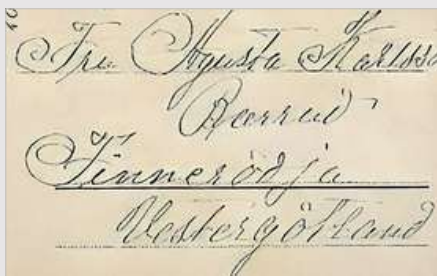 Fru Agusta Karlsso
Finnerödja
Vestergötland